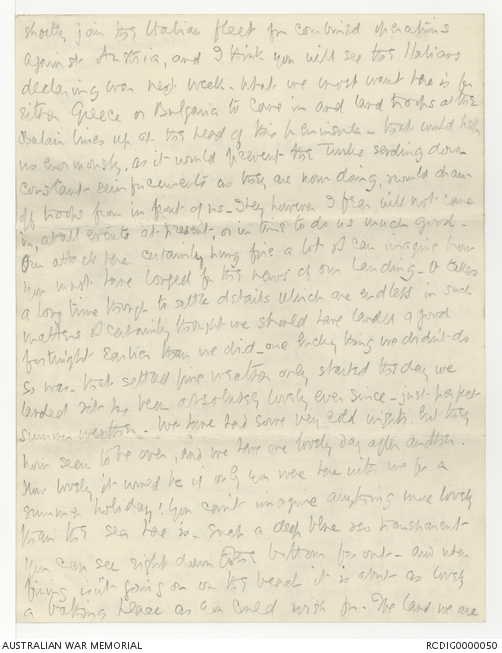 shortly join the Italian fleet for combined operations
against Austria, and I think you will see the Italians
declaring war next week. What we most want here is for
either Greece or Bulgaria to come in and land troops at the
Bulair lines up at the head of the peninsula - that would help
us enormously, as it would prevent the Turks sending down
constant reinforcements as they are now doing, & would draw
off troops from in front of us - They however I fear will not come
in, at all events at present, or in time to do us much good.
Our attack here certainly hung fire a lot & I can imagine how
you must have longed for the news of our landing - It takes
a long time though to settle details which are endless in such
matters & I certainly thought we should have landed a good
fortnight earlier than we did - one lucky thing we didn't do
so was that settled fine weather only started the day we
landed & it has been absolutely lovely ever since - just perfect
summer weather - We have had some very cold nights, but they
now seem to be over, and we have one lovely day after another.
How lovely it would be if only you were here with me for a
summer holiday! You can't imagine anything more lovely
than the sea here is - such a deep blue & so transparent -
You can see right down to the bottom far out - and when
firing isn't going on on the beach it is about as lovely
a bathing place as you could wish for. The land we are
AUSTRALIAN WAR MEMORIAL
RCDIG0000050